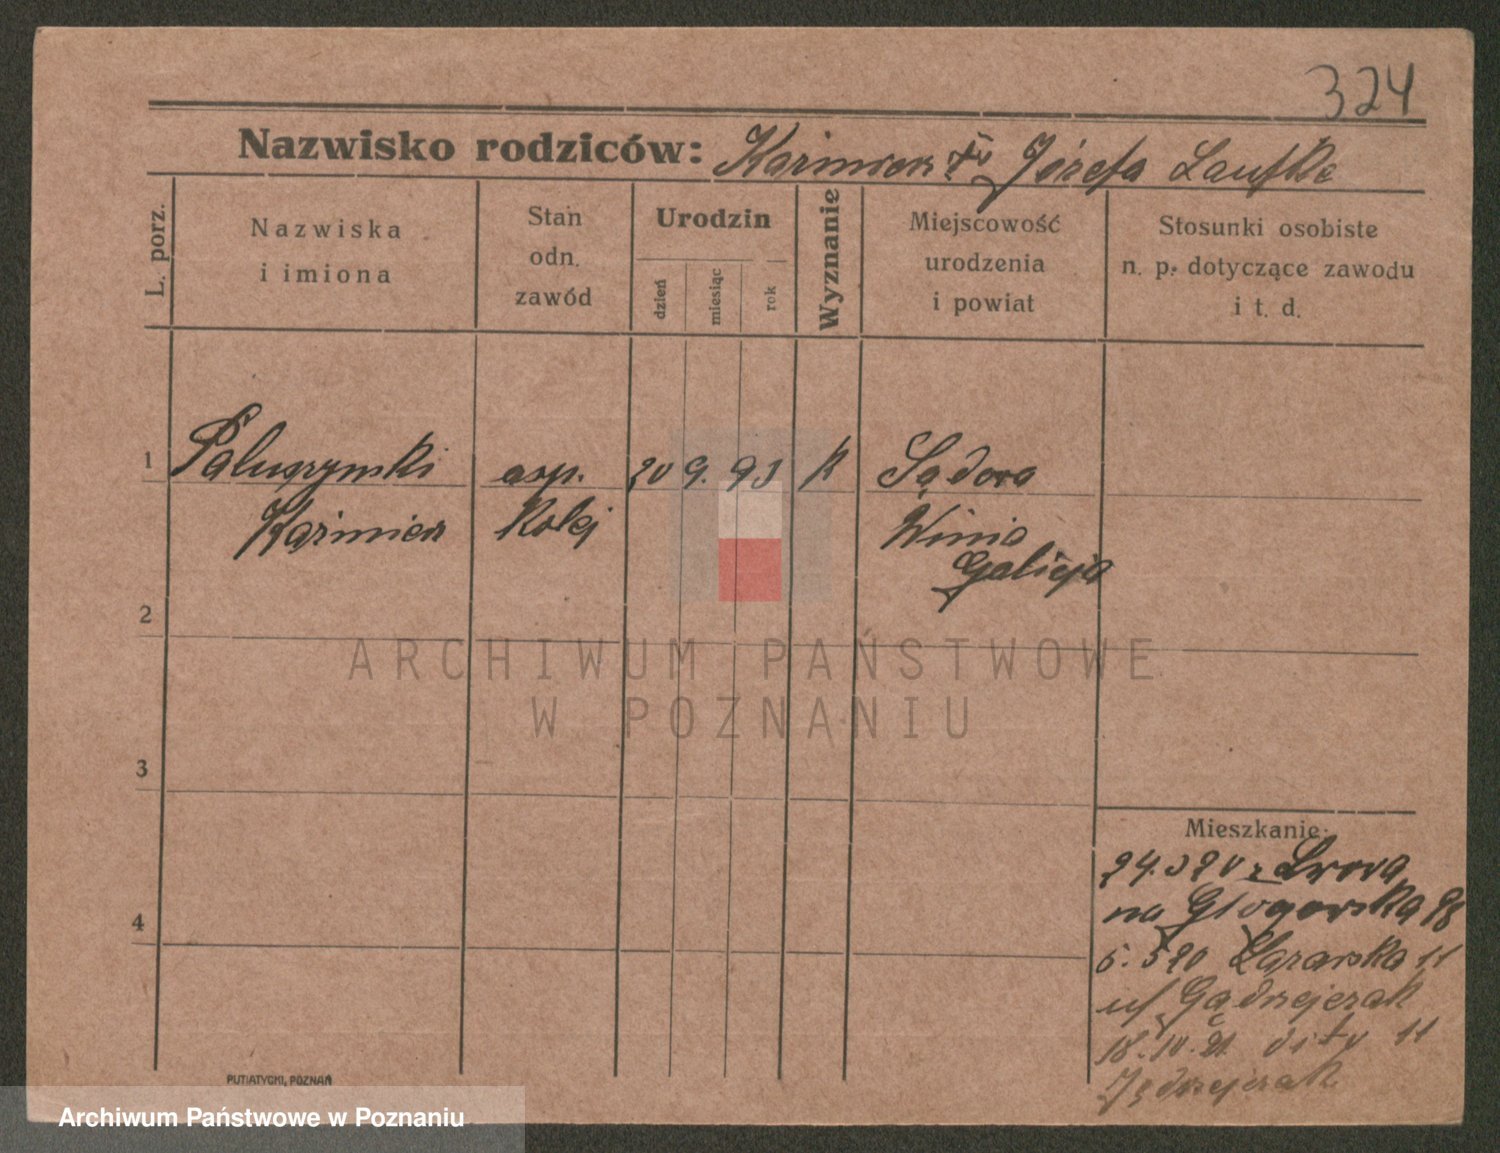 324
Nazwisko rodziców: Kazimierz Józefa Laufke
L. porz.
Nazwiska
i imiona
Stan
odn.
zawód
Urodzin
dzień
miesiąc
rok
Wyznanie
Miejscowość
urodzenia
i powiat
Stosunki osobiste
n. p. dotyczące zawodu
i t. d.
1 Paluszynski asp. 20 9. 93 K Sądova
Kaźmierz Kolej Winia
Galicja
2
ARCHIWUM PAŃSTWOWE
W POZNANIU
3
Mieszkanie:
24.3 20 z Lwova
na Głogowska 98
4
5. 5 20 Łazarska 11
u/ Jądrzejczak
18.10.21 dito 11
Jędrzejczak
PUTIATYCKI, POZNAŃ
Archiwum Państwowe w Poznaniu